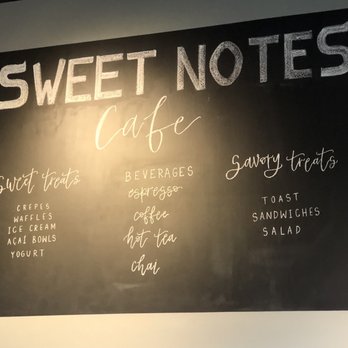 SWEET NOTES
Cafe
Sweet treats
CREPES
WAFFLES
ICE CREAM
ACAÍ BOWLS
YOGURT
BEVERAGES
espresso
coffee
hot tea
chai
Savory treats
TOAST
SANDWICHES
SALAD